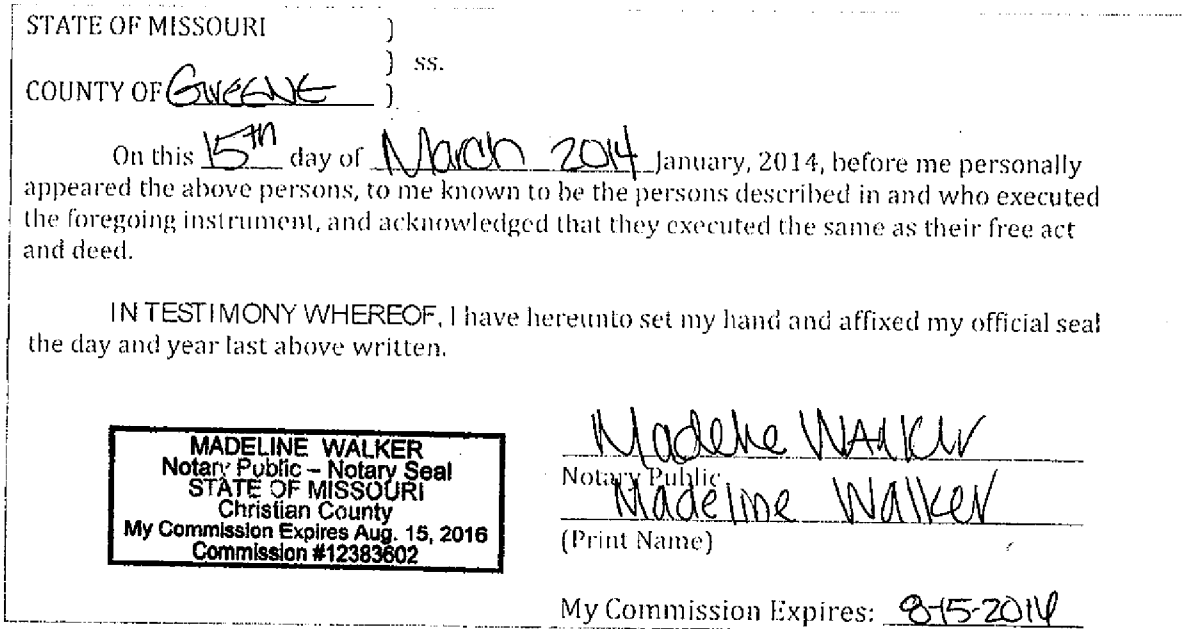 STATE OF MISSOURI )
) ss.
COUNTY OF Greene )
On this 15th day of March 2014 January, 2014, before me personally
appeared the above persons, to me known to be the persons described in and who executed
the foregoing instrument, and acknowledged that they executed the same as their free act
and deed.
IN TESTIMONY WHEREOF, I have hereunto set my hand and affixed my official seal
the day and year last above written.
MADELINE WALKER
Notary Public – Notary Seal
STATE OF MISSOURI
Christian County
My Commission Expires Aug. 15, 2016
Commission #12383602
Madeline Walker
Notary Public
Madeline Walker
(Print Name)
My Commission Expires: 8-15-2016